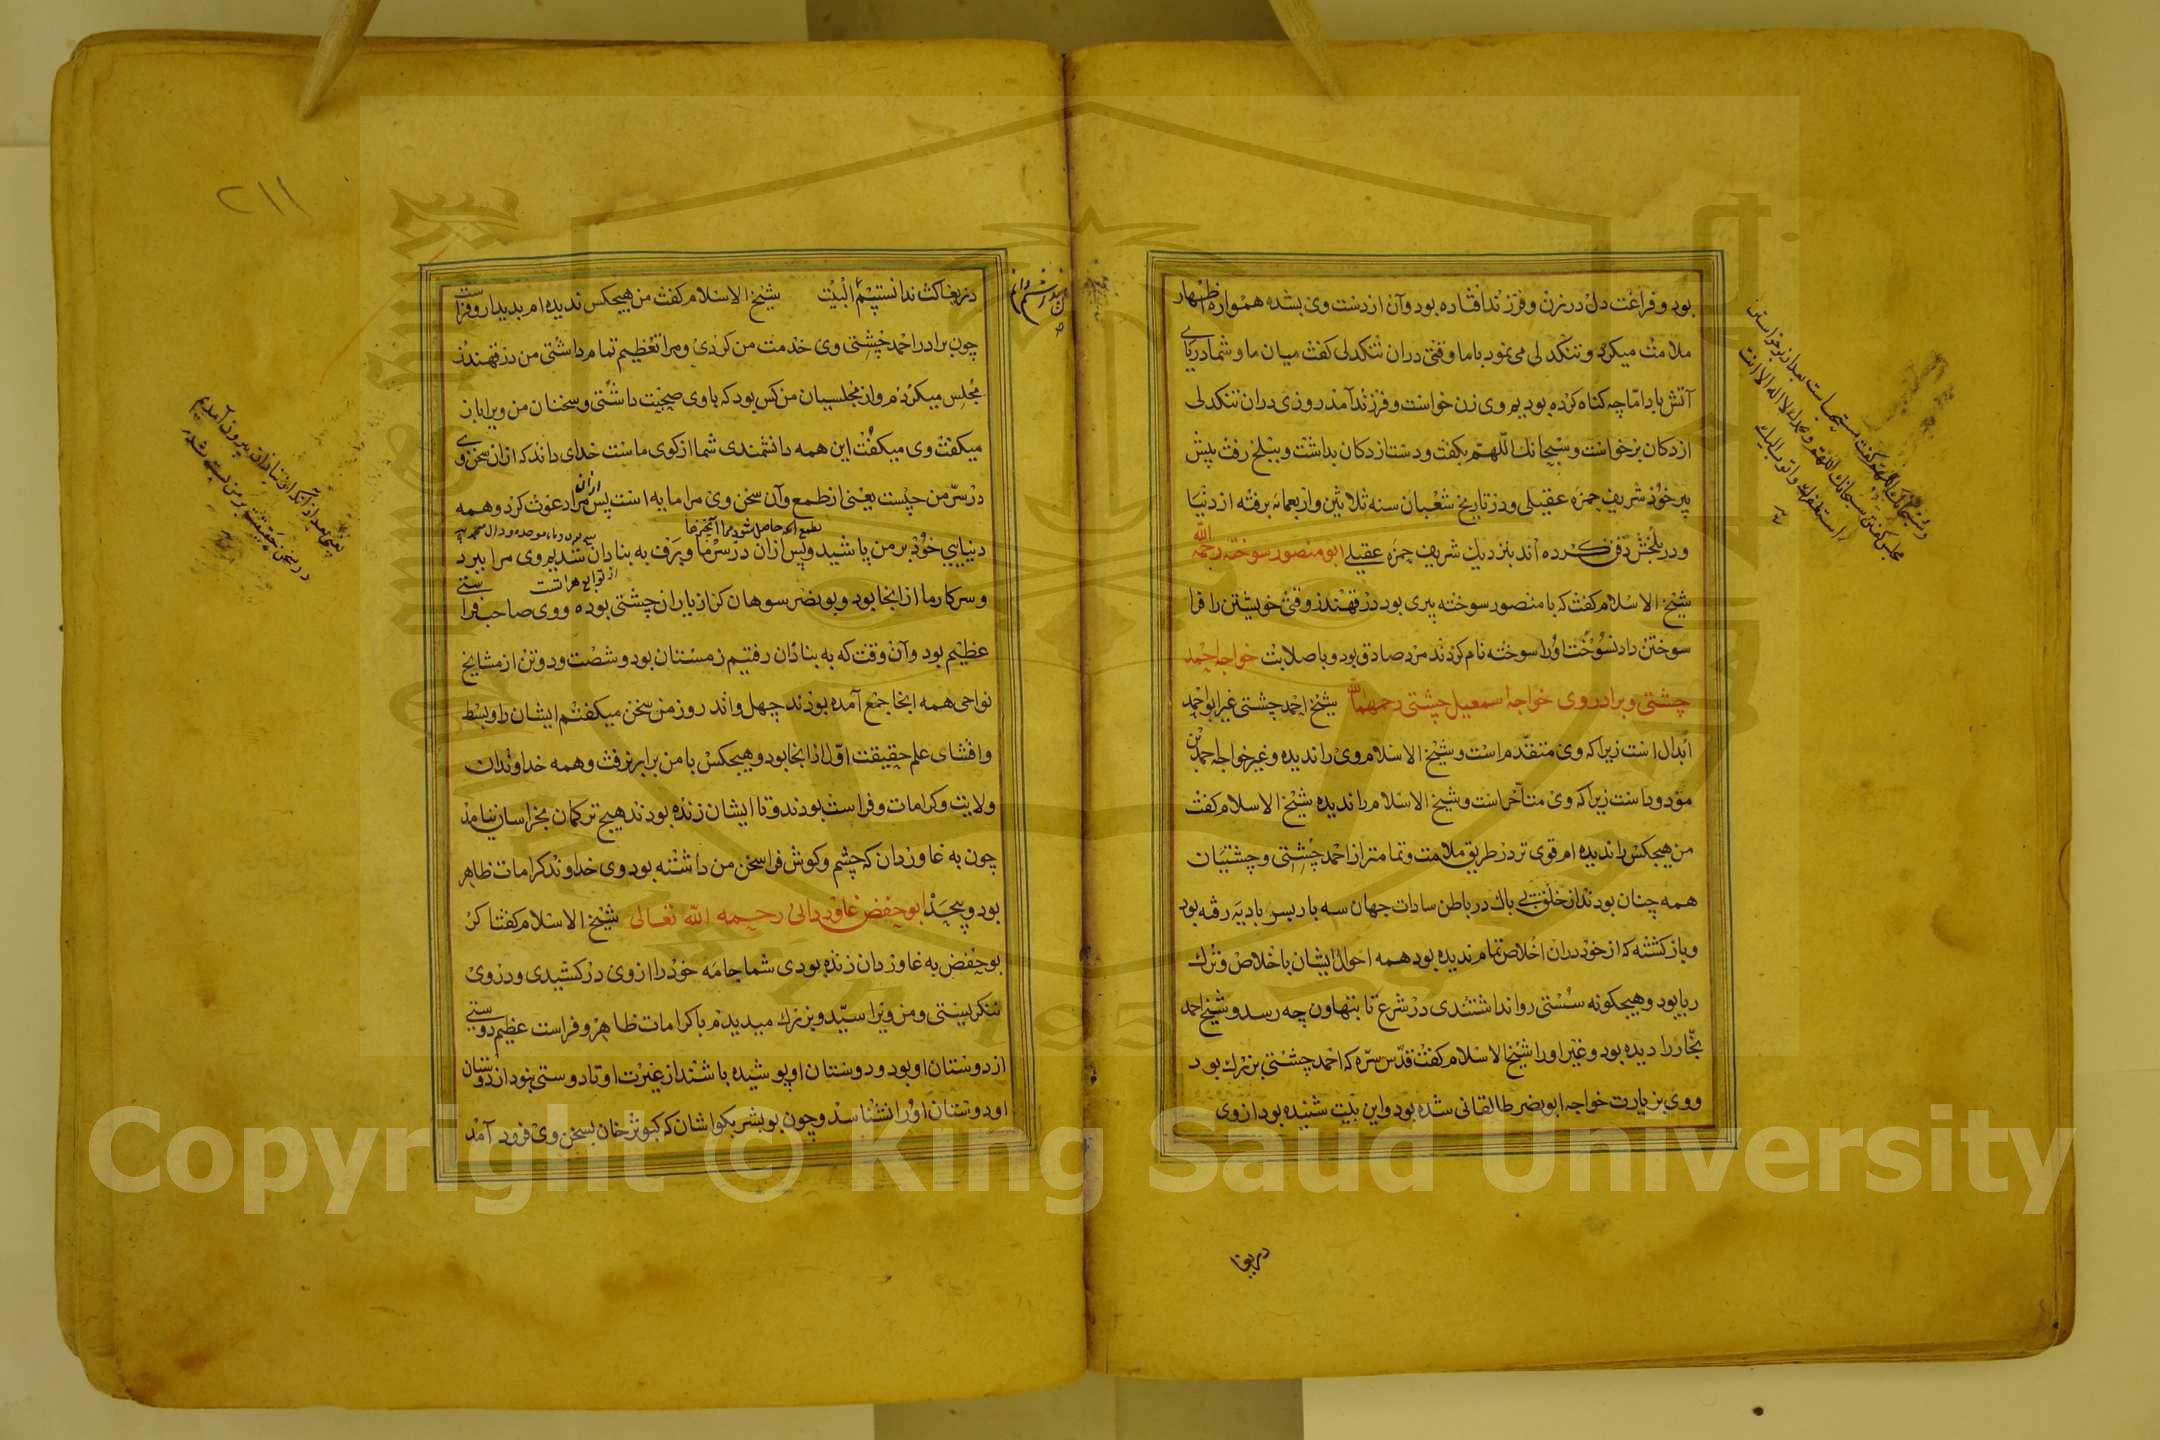 بود و فراغت دل در زن و فرزند افتاده بود و آن از دست وی بشده همواره اظهار
ملامت میکرد و تنکدلی می نمود با ما وقتی دران تنکدلی کفت میان ما و شما دریای
آتش باد اما چه کناه کرده بودیم وی زن خواست و فرزند آمد روزی دران تنکدلی
از دکان برخواست و سبحانک اللهم بکفت و دست از دکان بداشت و ببلخ رفت پیش
پیر خود شریف حمزه عقیلی و در تاریخ شعبان سنه ثلاثین و اربعمائه برفته از دنیا
و در بلخش دفن کرده اند بنزدیک شریف حمزه عقیلی ابو منصور سوخته رحمه الله
شیخ الاسلام کفت که با منصور سوخته پیری بود در قهندز وقتی خویشتن را فرا
سوختن داد نسوخت او را سوخته نام کردند مرد صادق بود و با صلابت خواجه احمد
چشتی و برادر وی خواجه اسمعیل چشتی رحمهما الله شیخ احمد چشتی غیر ابو احمد
ابدال است زیرا که وی متقدم است و شیخ الاسلام وی را ندیده و غیر خواجه احمد بن
مودود است زیرا که وی متأخر است و شیخ الاسلام را ندیده شیخ الاسلام کفت
من هیچکس را ندیده ام قوی تر در طریق ملامت و تمامتر از احمد چشتی و چشتیان
همه چنان بودند از خلق بی باک در باطن سادات جهان سه بار بسر بادیه رفته بود
و باز کشته که از خود دران اخلاص تمام ندیده بود همه احوال ایشان با خلاص و ترک
ریا بود و هیچکونه سستی روا نداشتندی در شرع تا بتهاون چه رسد و شیخ احمد
نجار را دیده بود و غیر او را شیخ الاسلام کفت قدس سره که احمد چشتی بزرک بود
و وی بزیارت خواجه ابو نصر طالقانی شده بود و این بیت شنیده بود از وی
دریغا
٢١١
دریغا کت ندانستیم البیت شیخ الاسلام کفت من هیچکس ندیده ام بدیدار و فراست
چون برادر احمد چشتی وی خدمت من کردی و مرا تعظیم تمام داشتی من در قهندز
مجلس میکردم و از مجلسیان من کس بود که با وی صحبت داشتی و سخنان من ویرا باز
میکفت وی میکفت این همه دانشمندی شما از کوی ماست خدای داند که از ان سخن وی
در سر من چیست یعنی از طمع و آن سخن وی مرا مایه است پس مرا دعوت کرد و همه
دنیایی خود بر من پاشید و پس ازان در سرما و برف به بنادان شدیم وی مرا ببرد
از توابع هراتست
و سر کار ما از انجا بود و بو نصر سوهان کز از یاران چشتی بوده و وی صاحب فراستی
عظیم بود و آن وقت که به بنادان رفتیم زمستان بود و شصت و دو تن از مشایخ
نواحی همه انجا جمع آمده بودند چهل و اند روز من سخن میکفتم ایشان را و بسط
و افشای علم حقیقت اول از انجا بود و هیچکس با من برابر نرفت و همه خداوندان
ولایت و کرامات و فراست بودند و تا ایشان زنده بودند هیچ ترکمان بخراسان نیامد
چون به غاوردان که چشم و کوش فرا سخن من داشته بود وی خداوند کرامات ظاهر
بود و بیحد ابو حفص غاوردانی رحمه الله تعالی شیخ الاسلام کفتا کر
بو حفص به غاوردان زنده بودی شما جامه خود را از وی در کشیدی و در وی
ننکریستی و من ویرا سید و بزرک میدیدم با کرامات ظاهر و فراست عظیم دوستی
از دوستان او بود و دوستان او پوشیده باشند از غیرت او تا دوستی نبود از دوستان
او دوستان او را نشناسد و چون بو بشر بکواشان که کبوتر خان بسخن وی فرود آمد
Copyright © King Saud University